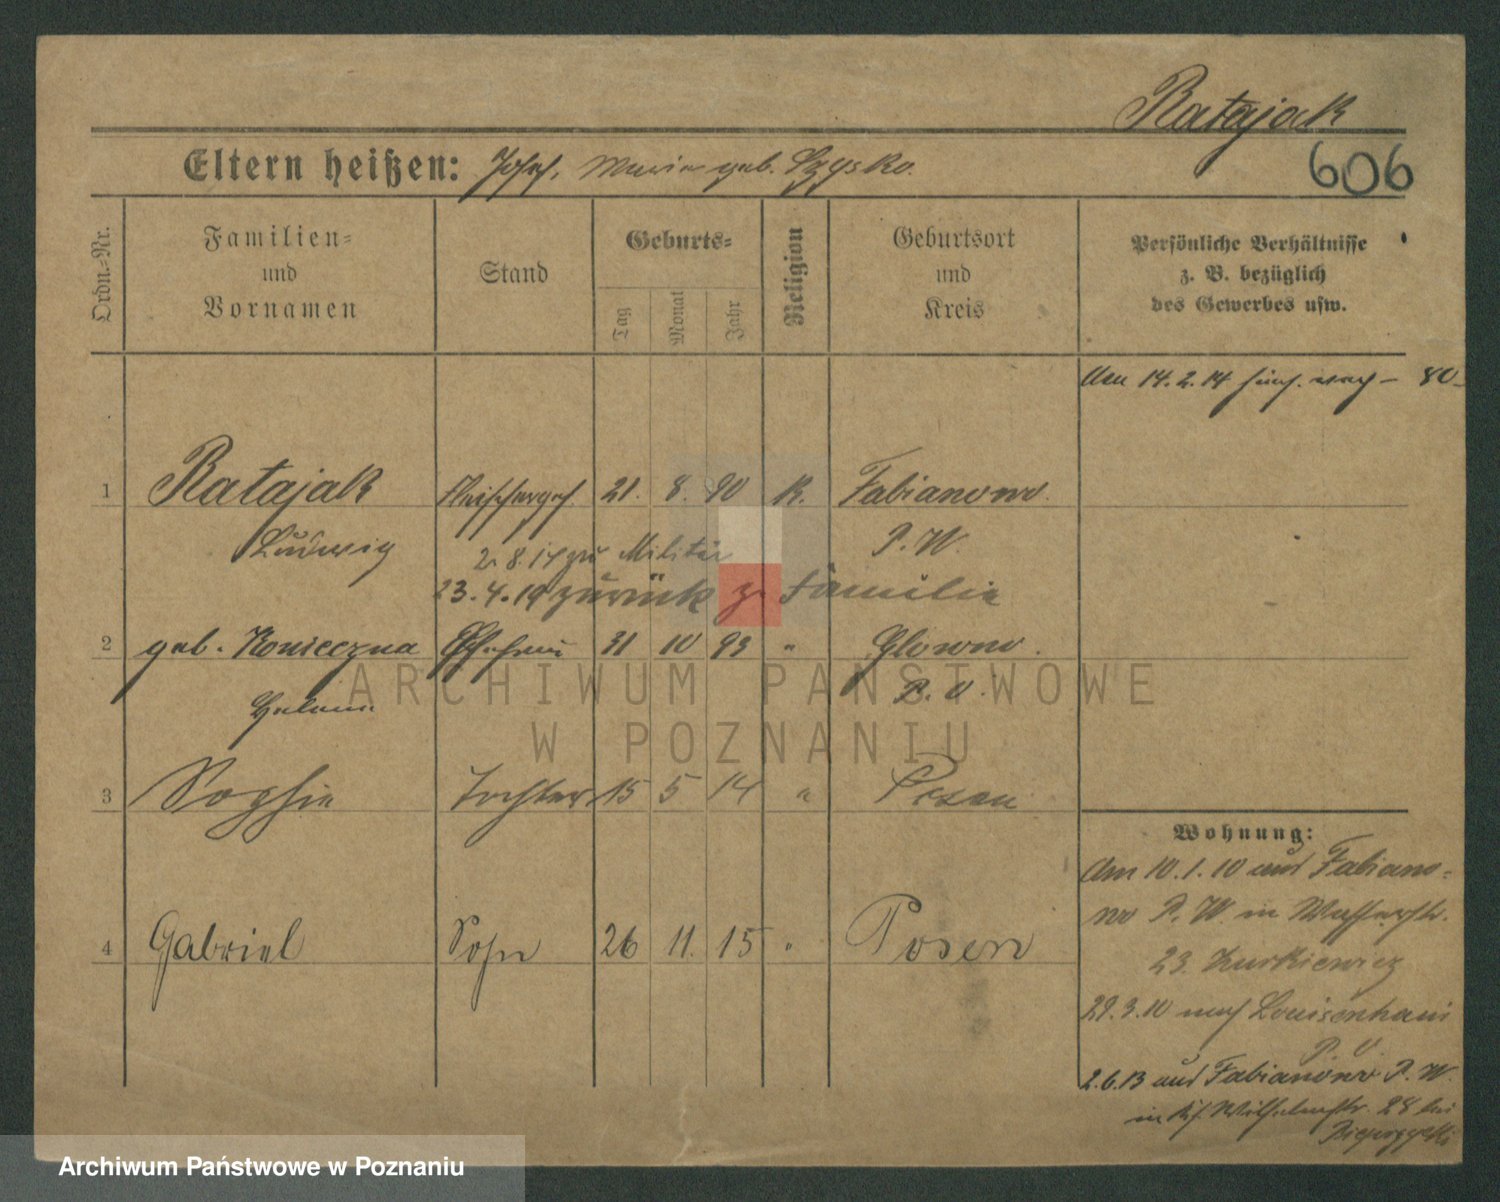 Ratajak
Eltern heißen: Josef, Maria geb. Szysko.
606
Ordn.=Nr.
Familien=
und
Vornamen
Stand
Geburts=
Tag
Monat
Jahr
Religion
Geburtsort
und
Kreis
Persönliche Verhältnisse
z. B. bezüglich
des Gewerbes usw.
Am 14.2.14 80
1 Ratajak Fleischerges. 21. 8. 90 K. Fabianowo.
Ludwig P. W.
2.8.14 zu Militär
23.4.19 zurück z. Familie
2 geb. Konieczna Ehefrau 31 10 93 " Glowno.
Helene P. O.
3 Sophie Tochter 15 5 14 " Posen
4 Gabriel Sohn 26 11. 15 " Posen
Wohnung:
Am 10.1.10 aus Fabiano=
wo P. W. in Wasserstr.
23. Kurkiewicz
29.3.10 nach Louisenhain
P. O.
2.6.13 aus Fabianowo P. W.
in Wilhelmstr. 28 bei
ARCHIWUM PAŃSTWOWE
W POZNANIU
Archiwum Państwowe w Poznaniu